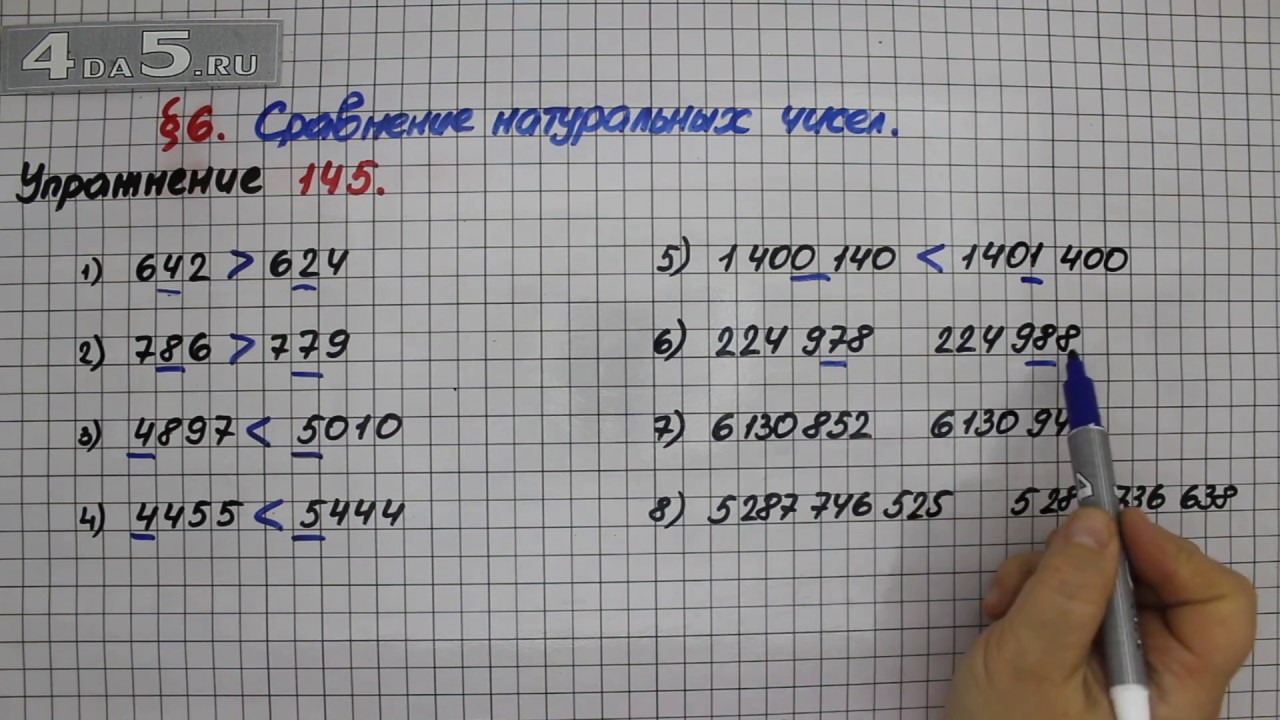 4DA5.RU
§6. Сравнение натуральных чисел.
Упражнение 145.
1) 642 > 624
2) 786 > 779
3) 4897 < 5010
4) 4455 < 5444
5) 1 400 140 < 1401 400
6) 224 978 224 988
7) 6 130 852 6 130
8) 5 287 746 525 736 638